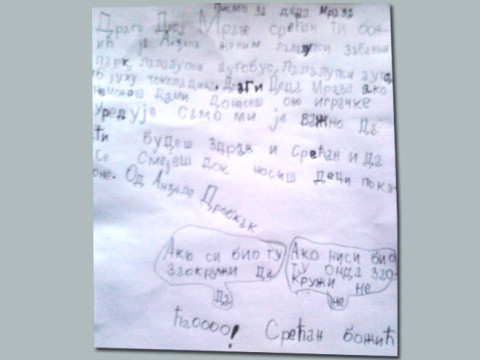 Писмо за деда Мраза
Драги Деда Мразе срећан ти бож-
ић ја Анђела желим лалалупси забавни
парк, лалалупси аутобус, лалалупси аута
б зуку чоколадица. Драги Деда Мразе ако
неможеш дами донесеш ове играчке
уредује само ми је важно да
ти будеш здрав и срећан и да
се смејеш док носиш деци покл-
оне. Од Анђеле
Ако си био ту
заокружи да
Да
Ако ниси био
ту онда зао-
кружи не
не
ћаоооо! Срећан божић